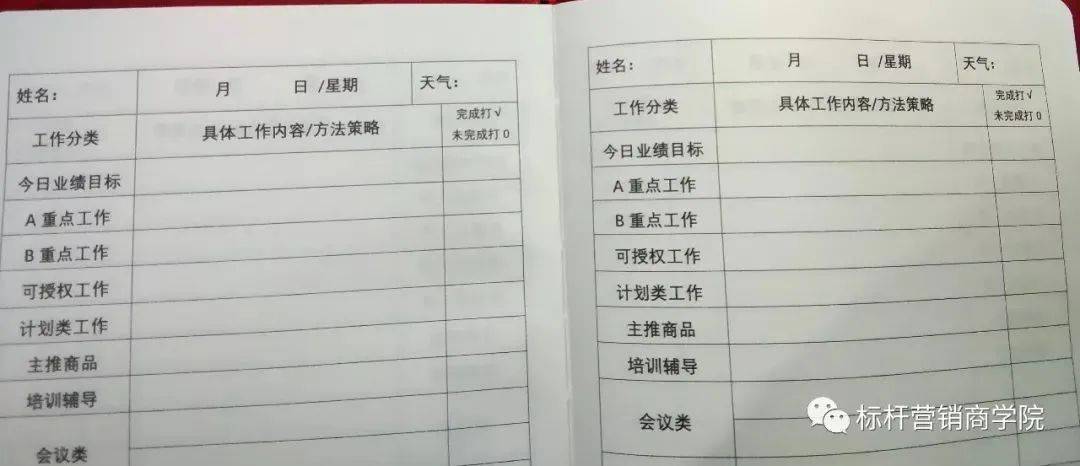 姓名： 月 日 /星期 天气：
工作分类 具体工作内容/方法策略 完成打√
未完成打 0
今日业绩目标
A 重点工作
B 重点工作
可授权工作
计划类工作
主推商品
培训辅导
会议类
姓名： 月 日 /星期 天气：
工作分类 具体工作内容/方法策略 完成打√
未完成打 0
今日业绩目标
A 重点工作
B 重点工作
可授权工作
计划类工作
主推商品
培训辅导
会议类
标杆营销商学院